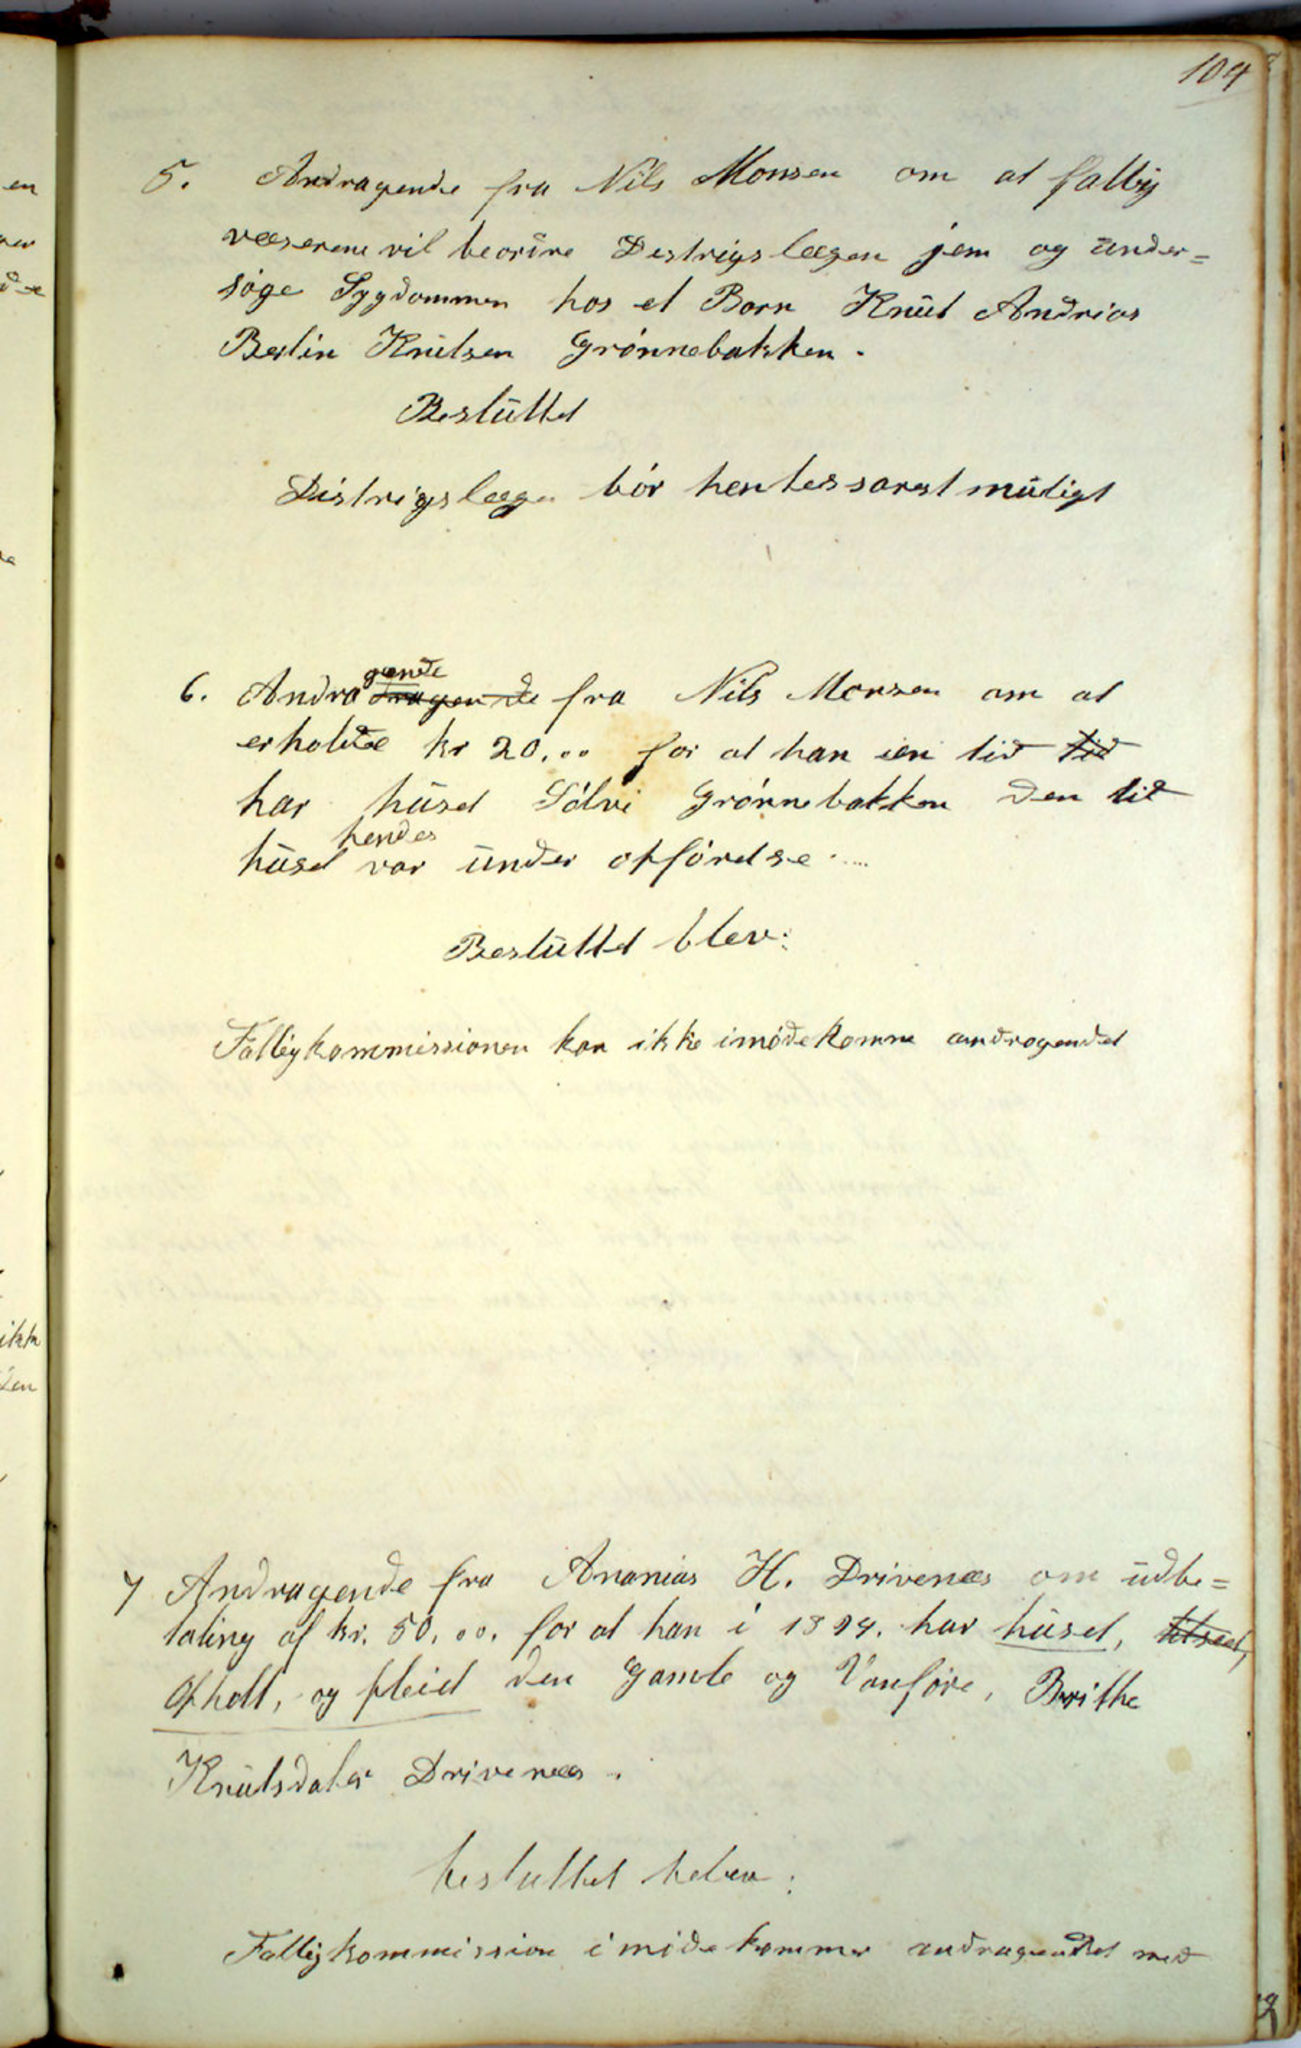 104
5. Andragende fra Nils Monsen om at fattig
væserene vil beordre Distrigslægen jem og under=
søge Sygdommen hos et Barn Knut Andrias
Berlin Knutsen Grønnebakken.
Besluttet
Distrigslæge bør hentes snarest muligt
6. Andragende dragende fra Nils Monsen om at
erholde kr 20.00 for at han i en tid tid
har huset Sølvi Grønnebakken den tid
huset hendes var under opførelse
Besluttet blev:
Fattigkommissionen kan ikke imødekomme andragendet
7 Andragende fra Ananias H. Drivenæs om udbe=
taling af kr. 50.00. for at han i 1894. har huset,
Ophold, og pleiet den Gamle og Vanføre, Brithe
Knutsdater Drivenæs.
besluttet
Fattigkommission imødekommer andragendet med